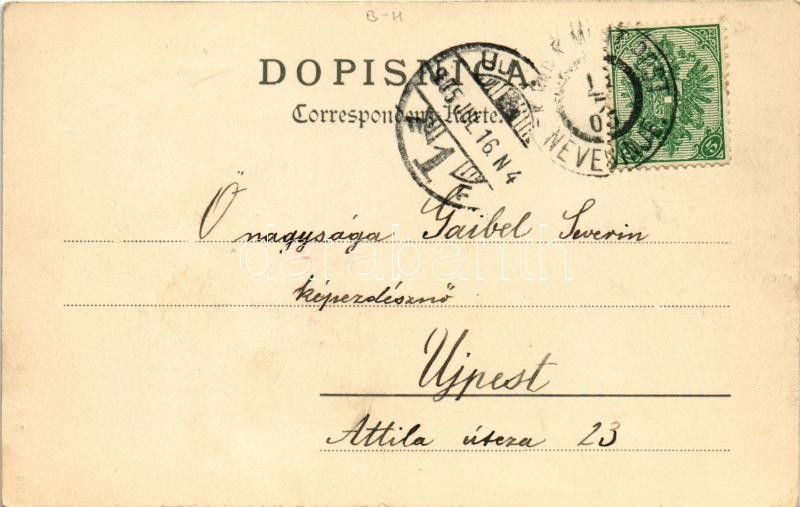 B-H
DOPISNICA.
Correspondenz-Karte.
905 JUL. 16. N 4
K. UND K. MILIT. POST
NEVESINJE
5
Ő nagysága Gaibel Severin
képezdésznő
Ujpest
Attila útcza 23
darabanth